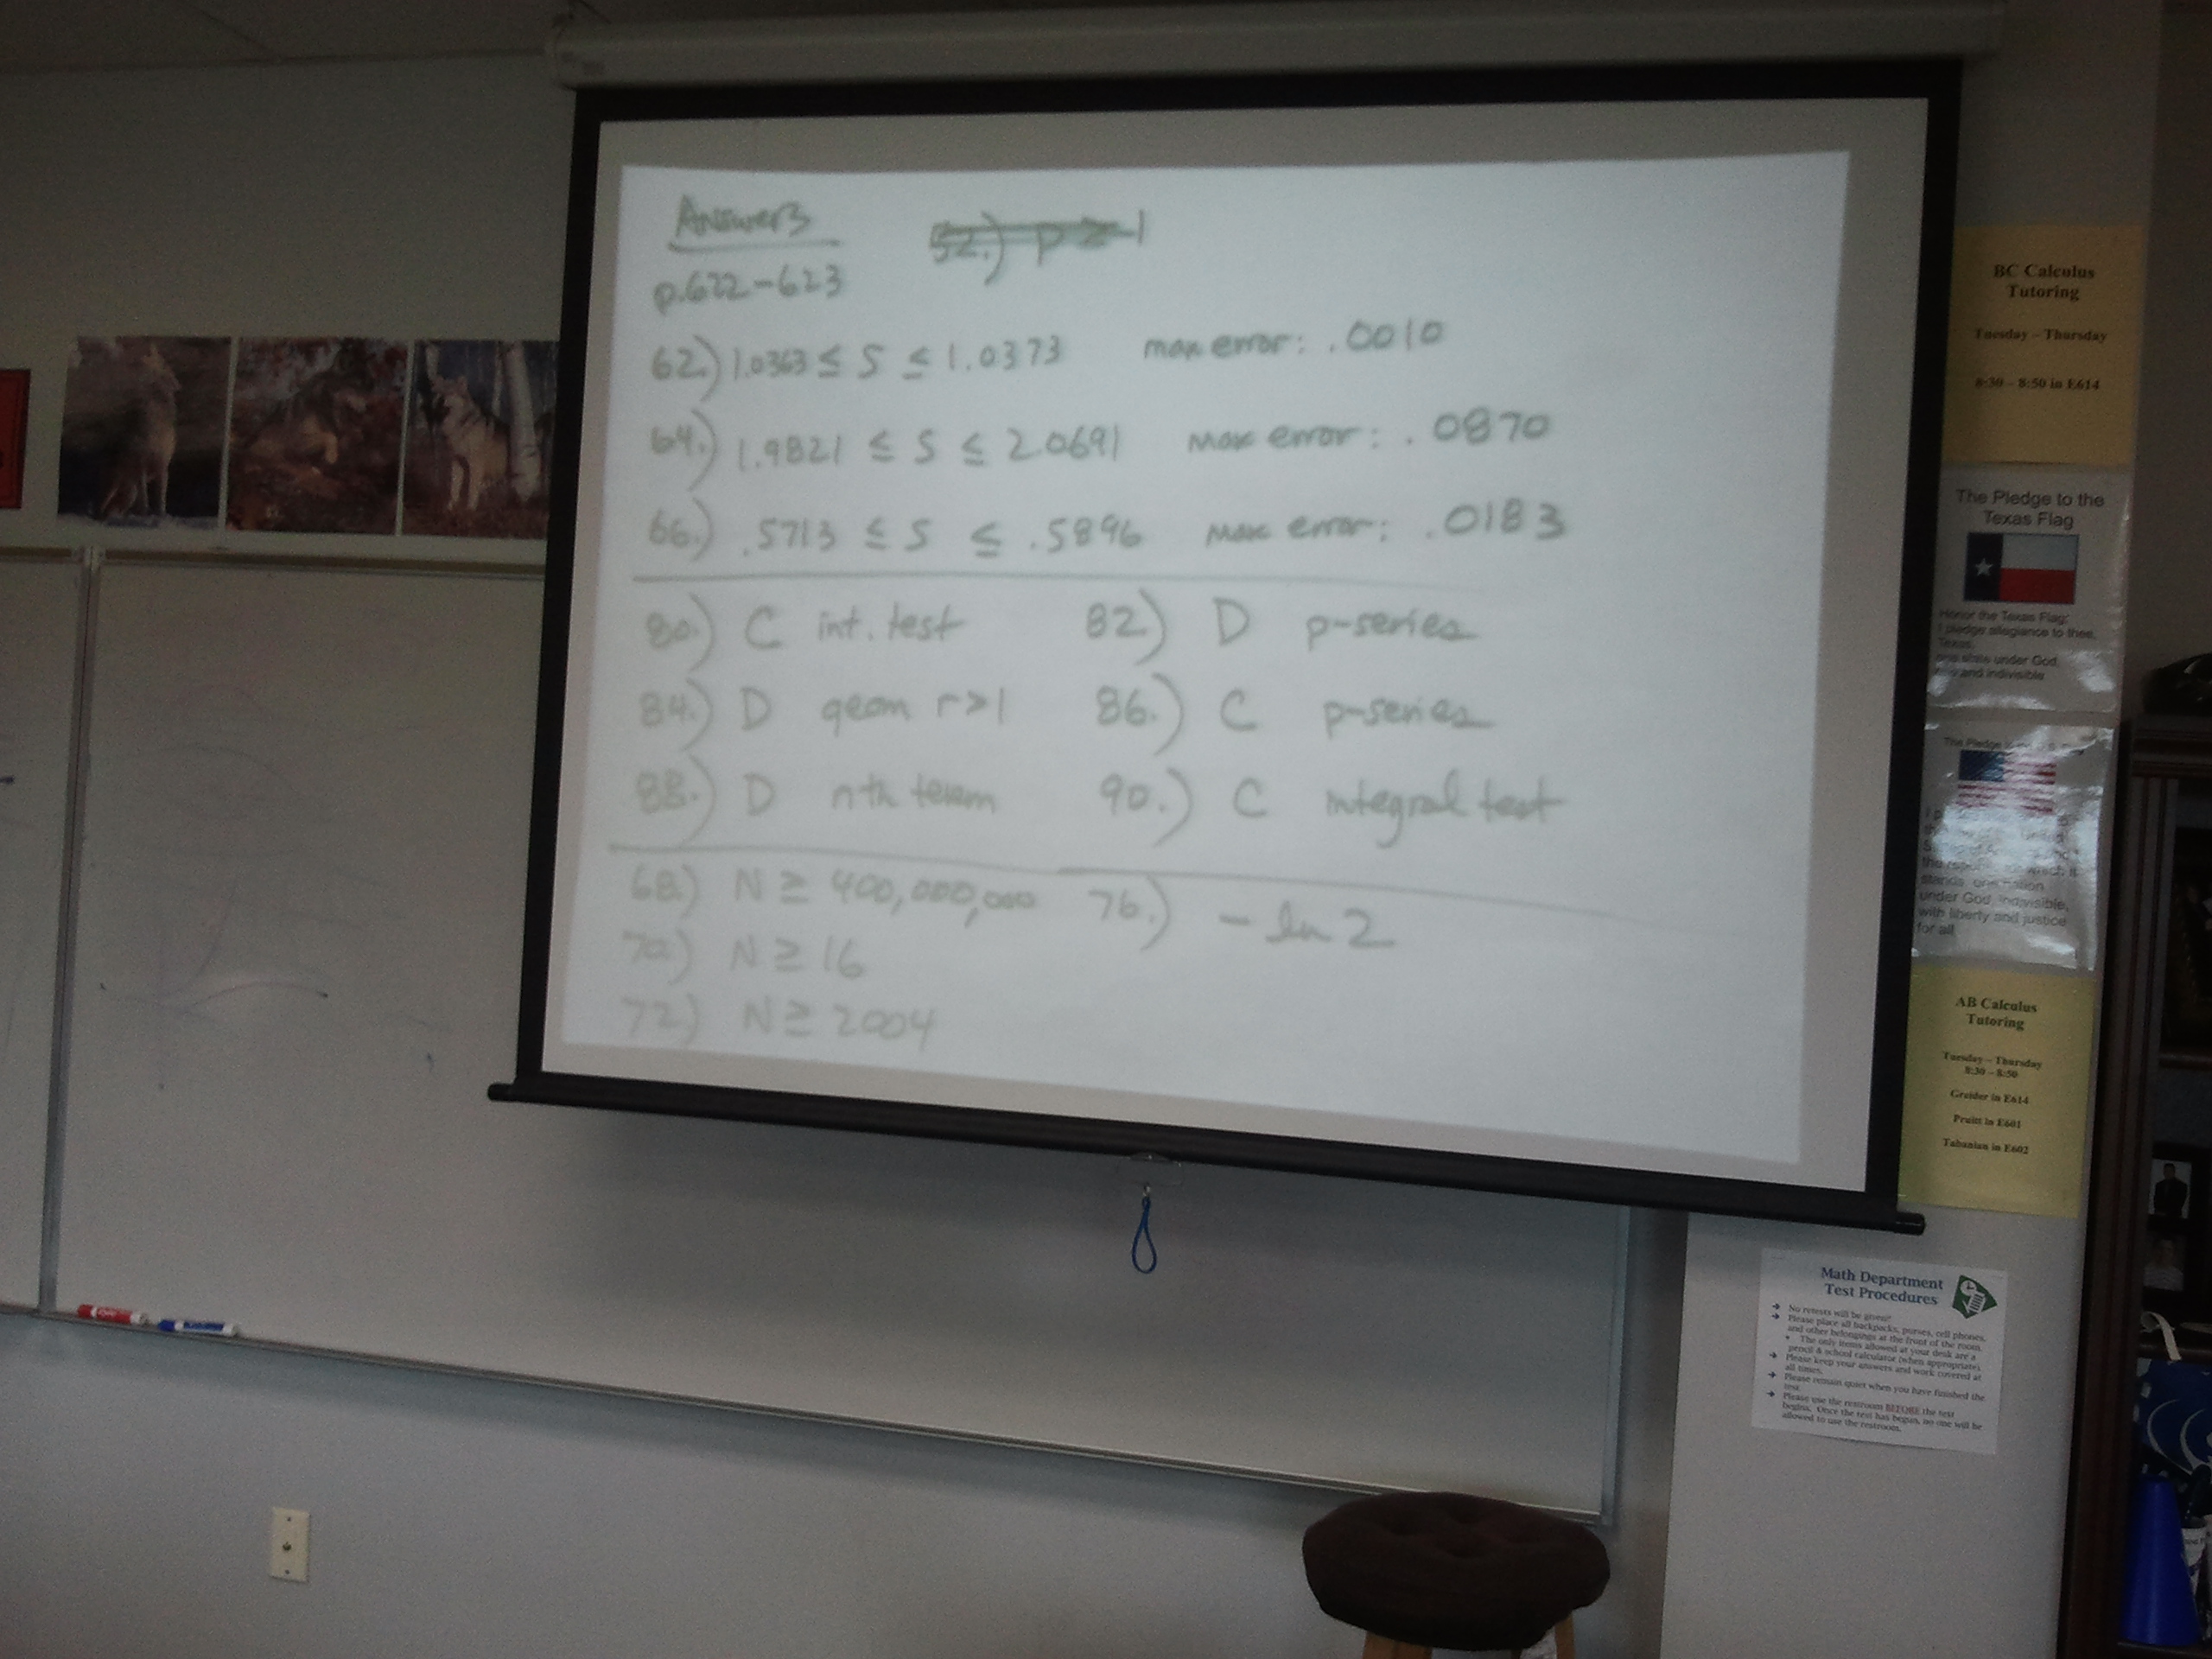 Answers
p.622-623
52.) p > 1
62.) 1.0363 ≤ S ≤ 1.0373 max error: .0010
64.) 1.9821 ≤ S ≤ 2.0691 max error: .0870
66.) .5713 ≤ S ≤ .5896 max error: .0183
80.) C int. test 82.) D p-series
84.) D geom r>1 86.) C p-series
88.) D nth term 90.) C integral test
68.) N ≥ 400,000,000 76.) - ln 2
70.) N ≥ 16
72.) N ≥ 2004
BC Calculus
Tutoring
Tuesday - Thursday
8:30 - 8:50 in E614
The Pledge to the
Texas Flag
Honor the Texas Flag;
I pledge allegiance to thee,
Texas,
one state under God
and indivisible
under God, indivisible,
with liberty and justice
for all
AB Calculus
Tutoring
Tuesday - Thursday
8:30 - 8:50
Greider in E614
Pruitt in E601
Tabanian in E602
Math Department
Test Procedures
No retests will be given!
Please place all backpacks, purses, cell phones,
and other belongings at the front of the room.
The only items allowed at your desk are a
pencil & school calculator (when appropriate).
Please keep your answers and work covered at
all times.
Please remain quiet when you have finished the
test.
Please use the restroom BEFORE the test
begins. Once the test has begun, no one will be
allowed to use the restroom.